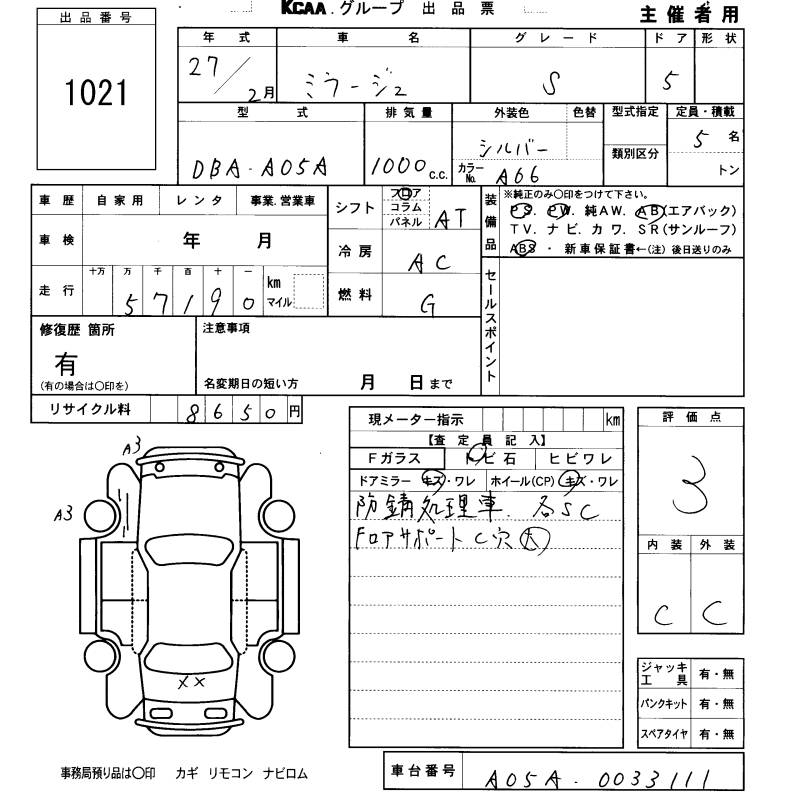 出品番号
1021
KCAA.グループ 出品票
主催者用
年式 車名 グレード ドア 形状
27/2月 ミラージュ S 5
型式 排気量 外装色 色替 型式指定 定員・積載
DBA-A05A 1000c.c. シルバー 5名
カラーNo. A66 類別区分 トン
車歴 自家用 レンタ 事業.営業車
車検 年 月
走行 十万 万 千 百 十 一 km マイル
57190
シフト フロア コラム パネル AT
冷房 AC
燃料 G
装備品
※純正のみ○印をつけて下さい。
PS. PW. 純AW. AB(エアバック)
TV. ナビ. カワ. SR(サンルーフ)
ABS ・ 新車保証書←(注) 後日送りのみ
セールスポイント
修復歴 箇所
有
(有の場合は○印を)
注意事項
名変期日の短い方 月 日まで
リサイクル料 8650円
現メーター指示 km
【査定員記入】
Fガラス トビ石 ヒビワレ
ドアミラー キズ・ワレ ホイール(CP) キズ・ワレ
防錆処理車. 各SC
FロアサポートC穴大
評価点
3
内装 外装
C C
A3
A3
××
ジャッキ工具 有・無
パンクキット 有・無
スペアタイヤ 有・無
事務局預り品は○印 カギ リモコン ナビロム
車台番号 A05A-0033111